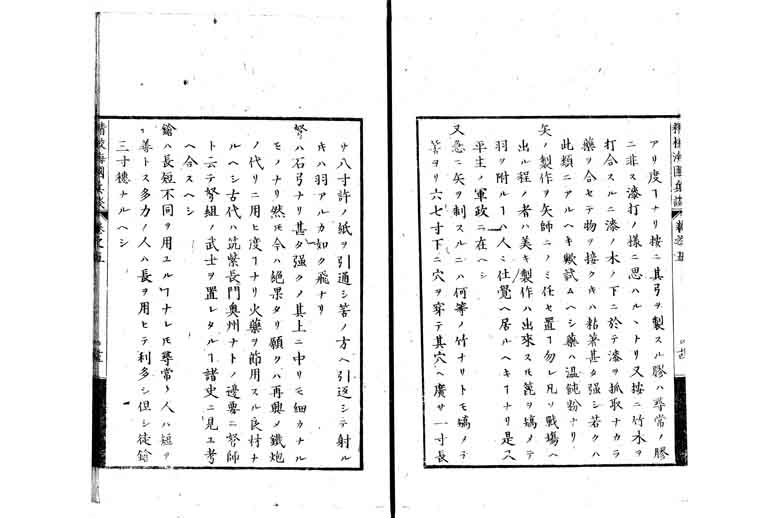 アリ度ヿナリ按ニ其弓ヲ製スル膠ハ尋常ノ膠
ニ非ス漆打ノ様ニ思ハル、トリ又按ニ竹木ヲ
打合スルニ漆ノ木ノ下ニ於テ漆ヲ抓取ナカラ
藥ヲ合セテ物ヲ接クキハ黏著甚タ强シ若クハ
此類ニアルヘキ歟試ムヘシ藥ハ温飩粉ナリ
矢ノ製作ヲ矢師ニノミ任セ置ヿ勿レ凡ソ戰場ヘ
出ル程ノ者ハ美キ製作ハ出來スㇳモ箆ヲ矯メテ
羽ヲ附ルヿハ人々仕覺ヘ居ルヘキヿナリ是又
平生ノ軍政ニ在ヘシ
又急ニ矢ヲ制スルニハ何等ノ竹ナリトモ矯メテ
筈ヨリ六七寸下ニ穴ヲ穿テ其穴ヘ廣サ一寸長
サ八寸許ノ紙ヲ引通シ筈ノ方ヘ引返シテ射ル
キハ羽アルカ如ク飛ナリ
弩ハ石弓ナリ甚タ强クノ其上ニ中リモ細カナル
モノナリ然モ今ハ絕果タリ願クハ再興メ鐵炮
ノ代リニ用ヒ度ヿナリ火藥ヲ節用スル良材ナ
ルヘシ古代ハ筑紫長門奧州ナトノ邊要ニ弩師
ト云テ弩組ノ武士ヲ置レタルヿ諸史ニ見ユ考
ヘ合スヘシ
鎗ハ長短不同ヲ用ユルヿナレモ尋常ノ人ハ短ヲ
善トス多力ノ人ハ長ヲ用ヒテ利多シ但シ徒鎗
三寸穗ナルヘシ
精校海國兵談 卷之五